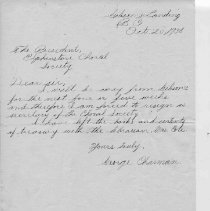 Gibson's Landing
B.C.
Oct. 20, 1938
The President,
Elphinstone Choral
Society
Dear Sir,
I will be away from Gibsons
for the next four or five weeks
and therefore I am forced to resign as
secretary of the Choral Society
I have left the books and
of with the Librarian Mrs. Cole.
Yours truly,
George Charman